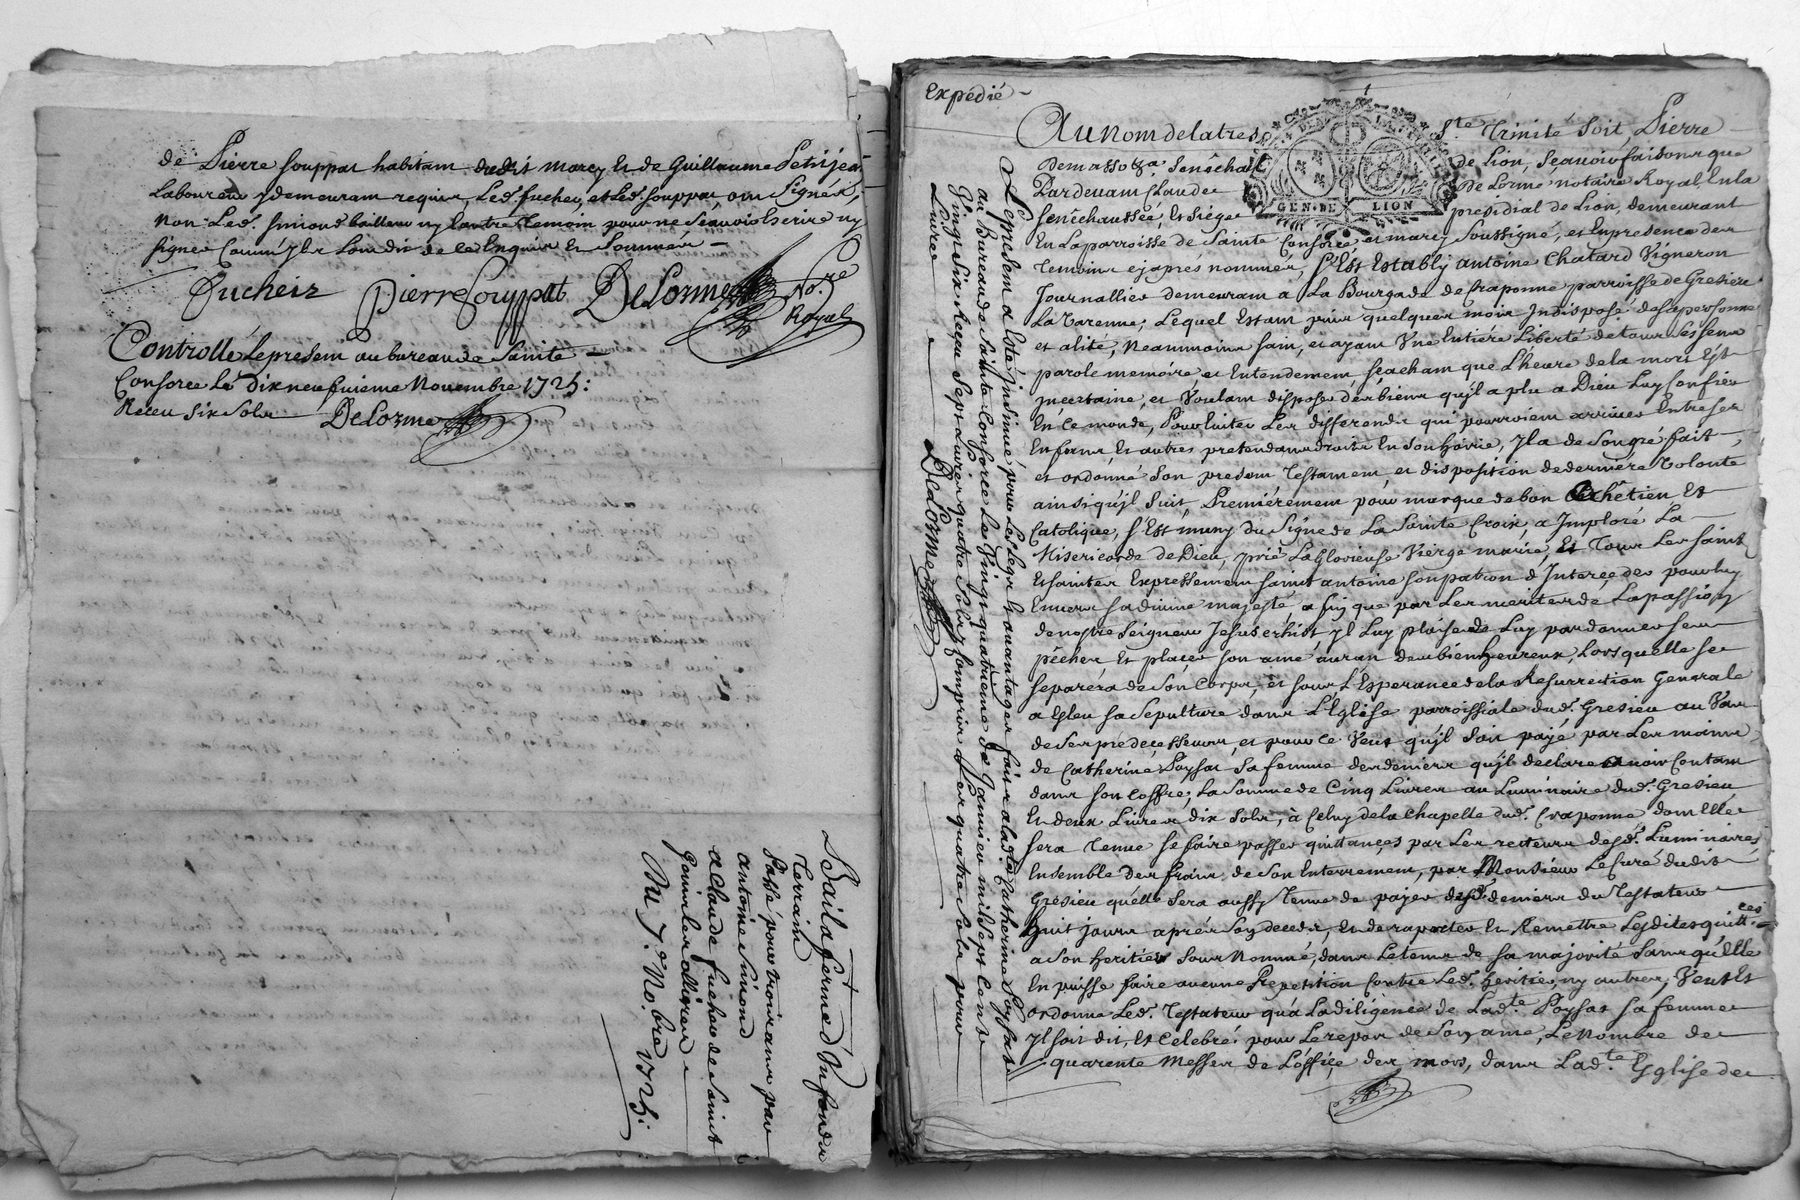 de Pierre Souppat habitam dudit Marcy Et de Guillaume Petitjean
Laboureur y demeuram requis, Led. fuchez, et Led. Souppat, ont Signés,
Non Led. Simond bailleur ny Lautre Temoin pour ne Scavoir Escrire ny
signer
Ducheiz Pierre Souppat DeLorme No.re
Royal
Controllé Le presem au bureau de Sainte
Consorce Le dix neufvieme Novembre 1725:
Receu six Sols DeLorme
Bail a ferme d'Un fond et
Terrain
Passé pour trois ans par
antoine Simond
a Claude fuchez de Saint
Genis les ollieres
Du 7.e No.bre 1725:
Expedié
Au nom de la tres Ste Trinité Soit Pierre
Demassoza Senéchal de Lion, Scavoir faisons que
Pardevam Claude De Lorme notaire Royal En la
Senéchaussée, Et Siége presidial de Lion, demeurant
GEN. DE LION
En La parroisse de Sainte Consorce et marcy Soussigné, et En presence des
Temoins cy aprés nommés, S'Est Estably antoine Chatard Vigneron
Journallier demeuram a La Bourgade de Craponne parroisse de Gresieu
La Varenne; Lequel Estam puis quelques mois Indisposé de sa personne
et alité, Neanmoins sain, et ayam Une Entiére Liberté de tous ses sens
parole memoire et Entendement, Scacham que L'heure de la mort Est
Incertaine, et Voulam disposer des biens qu'jl a plu a Dieu Luy Confier
En Ce monde, Pour Eviter Les differends qui pourroient arriver Entre ses
Enfans Et autres pretendans droits En son hoirie, Jl a de Son gré fait
et ordonné Son presem Testamem, et disposition de derniére Volonté
ainsi qu'jl Suit Premiérement pour marque de bon Chêtien Et
Catolique, S'Est muny du Signe de La Sainte Croix, a Imploré La
Misericorde de Dieu, prié La Glorieuse Vierge marie, Et Tous Les Saints
Et saintes Expressement saint antoine son patron d'Interceder pour luy
Envers sa divine majesté afin que par Les merites de La passion
de nostre Seigneur Jesus Christ jl Luy plaise de Luy pardonner ses
péchés Et placer son ame au ran des bienheureux, Lors quelle se
separéra de Son Corps, et sous L'Esperance de la Resurrection Generale
a Esleu sa Sepulture dans L'Eglise parroissiale dud. Gresieu au Vas
de Ses predecesseurs, et pour ce Veut qu'jl Soit payé par Les mains
de Catherine Poyssat Sa femme des deniers qu'jl declare avoir Contam
dans son Coffre; La Somme de Cinq Livres au Luminaire dud. Gresieu
Et deux Livres dix Sols, à Celuy de la Chapelle dud. Craponne dom Elle
sera Tenue se faire passer quittances par Les recteurs desd. Luminaires,
Ensemble des frais de Son Enterrement, par Monsieur Le Curé dudit
Gresieu quélle Sera aussy Tenue de payer desd. deniers du Testateur
Huit jours aprés Son decés, Et de raporter Et Remettre Lesdites quitt.ces
a Son heritier Sous Nommé, dans Le tems de sa majorité Sans qu'Elle
En puisse faire aucune Repetition Contre Led. heritier, ny autres, Veut Et
ordonne Led. Testateur qu'à La diligence de Lad.te Poyssat sa femme
jl soit dit, Et Celebré, pour Le repos de Son ame, Le Nombre de
quarente Messes de L'office des mors, dans Lad.te Eglise de
Le presem a Este jnsinué pour Les legs Et avantages faits a lad. Catherine Poyssat
au Bureau de Sainte Consorce Le Vingt quatriéme Janvier mil Sept Cents
Vingt Six Receu Sept Livres quatre Sols,
Livre
DeLorme